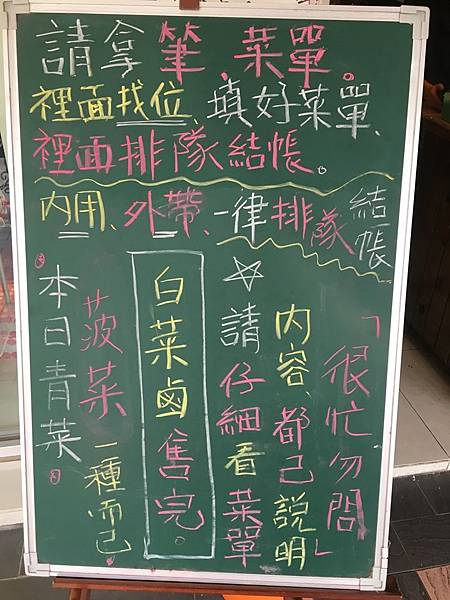 請拿筆、菜單、
裡面找位、填好菜單、
裡面排隊結帳。
內用、外帶、一律排隊結帳
「很忙勿問」
內容、都已說明
☆請仔細看菜單
白菜鹵售完。
菠菜一種而已
本日青菜